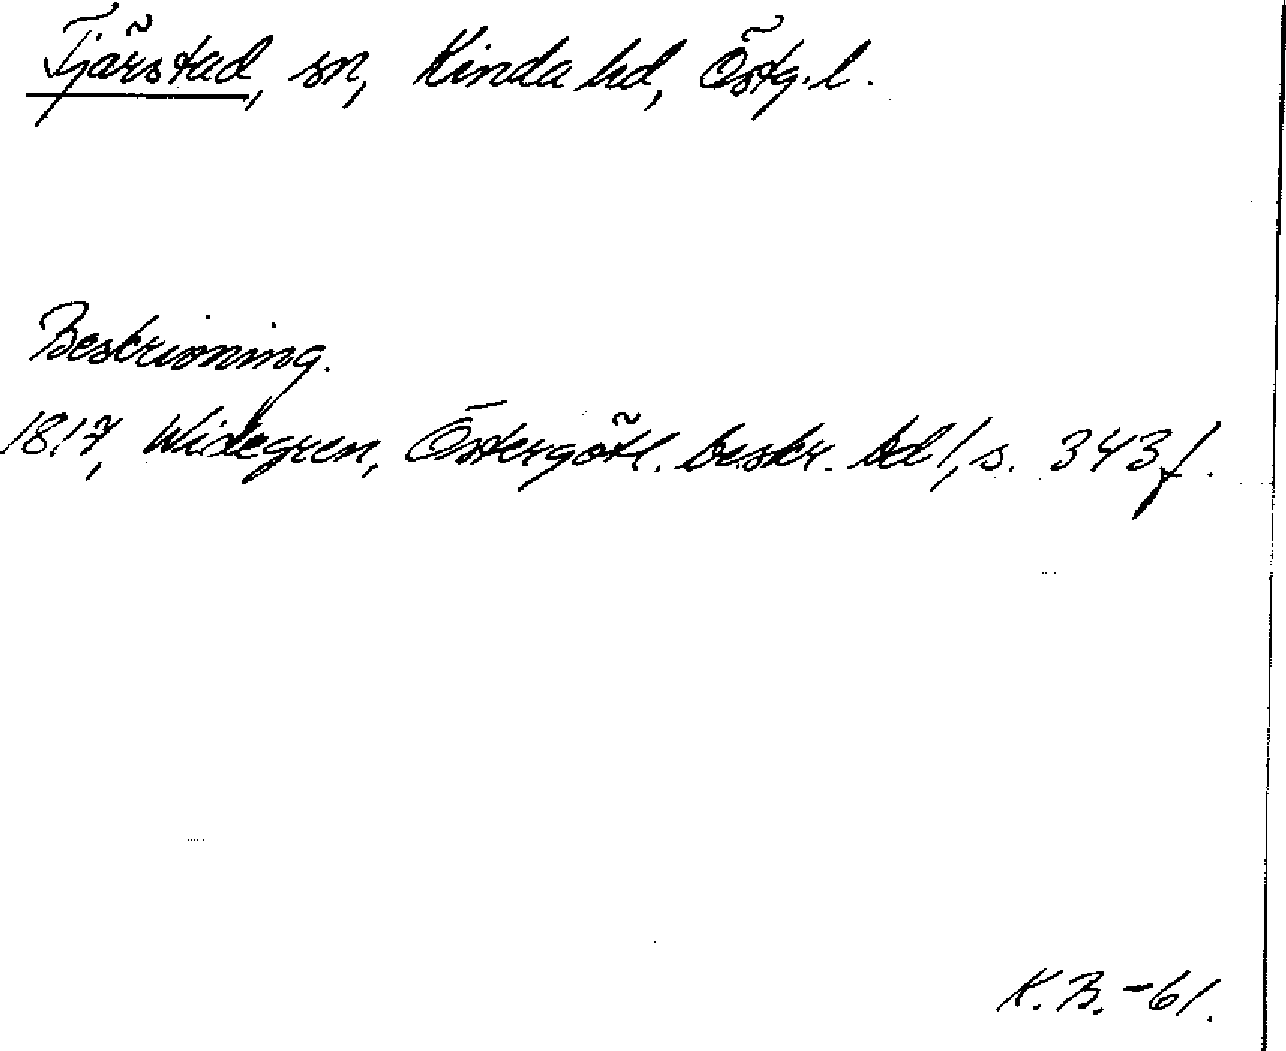 Tjärstad, sn, Kinda hd, Östg. l.
Beskrivning.
1817, Widegren, Östergötl. beskr. bd 1, s. 343 f.
K. B. -61.